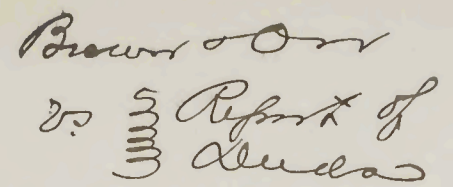 Brown & Orr
vs. Report of
Deeds